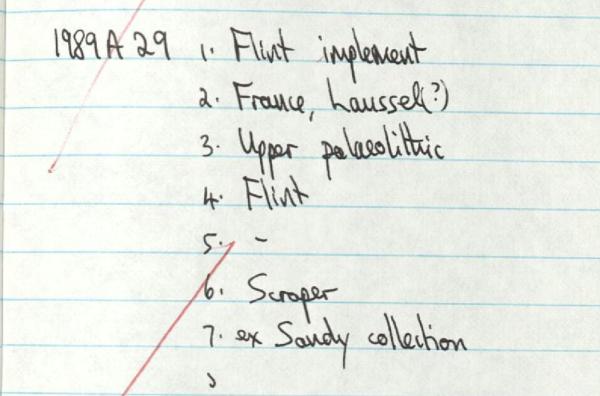 1989 A 29 1. Flint implement
2. France, Laussel(?)
3. Upper palaeolithic
4. Flint
5. -
6. Scraper
7. ex Sandy collection